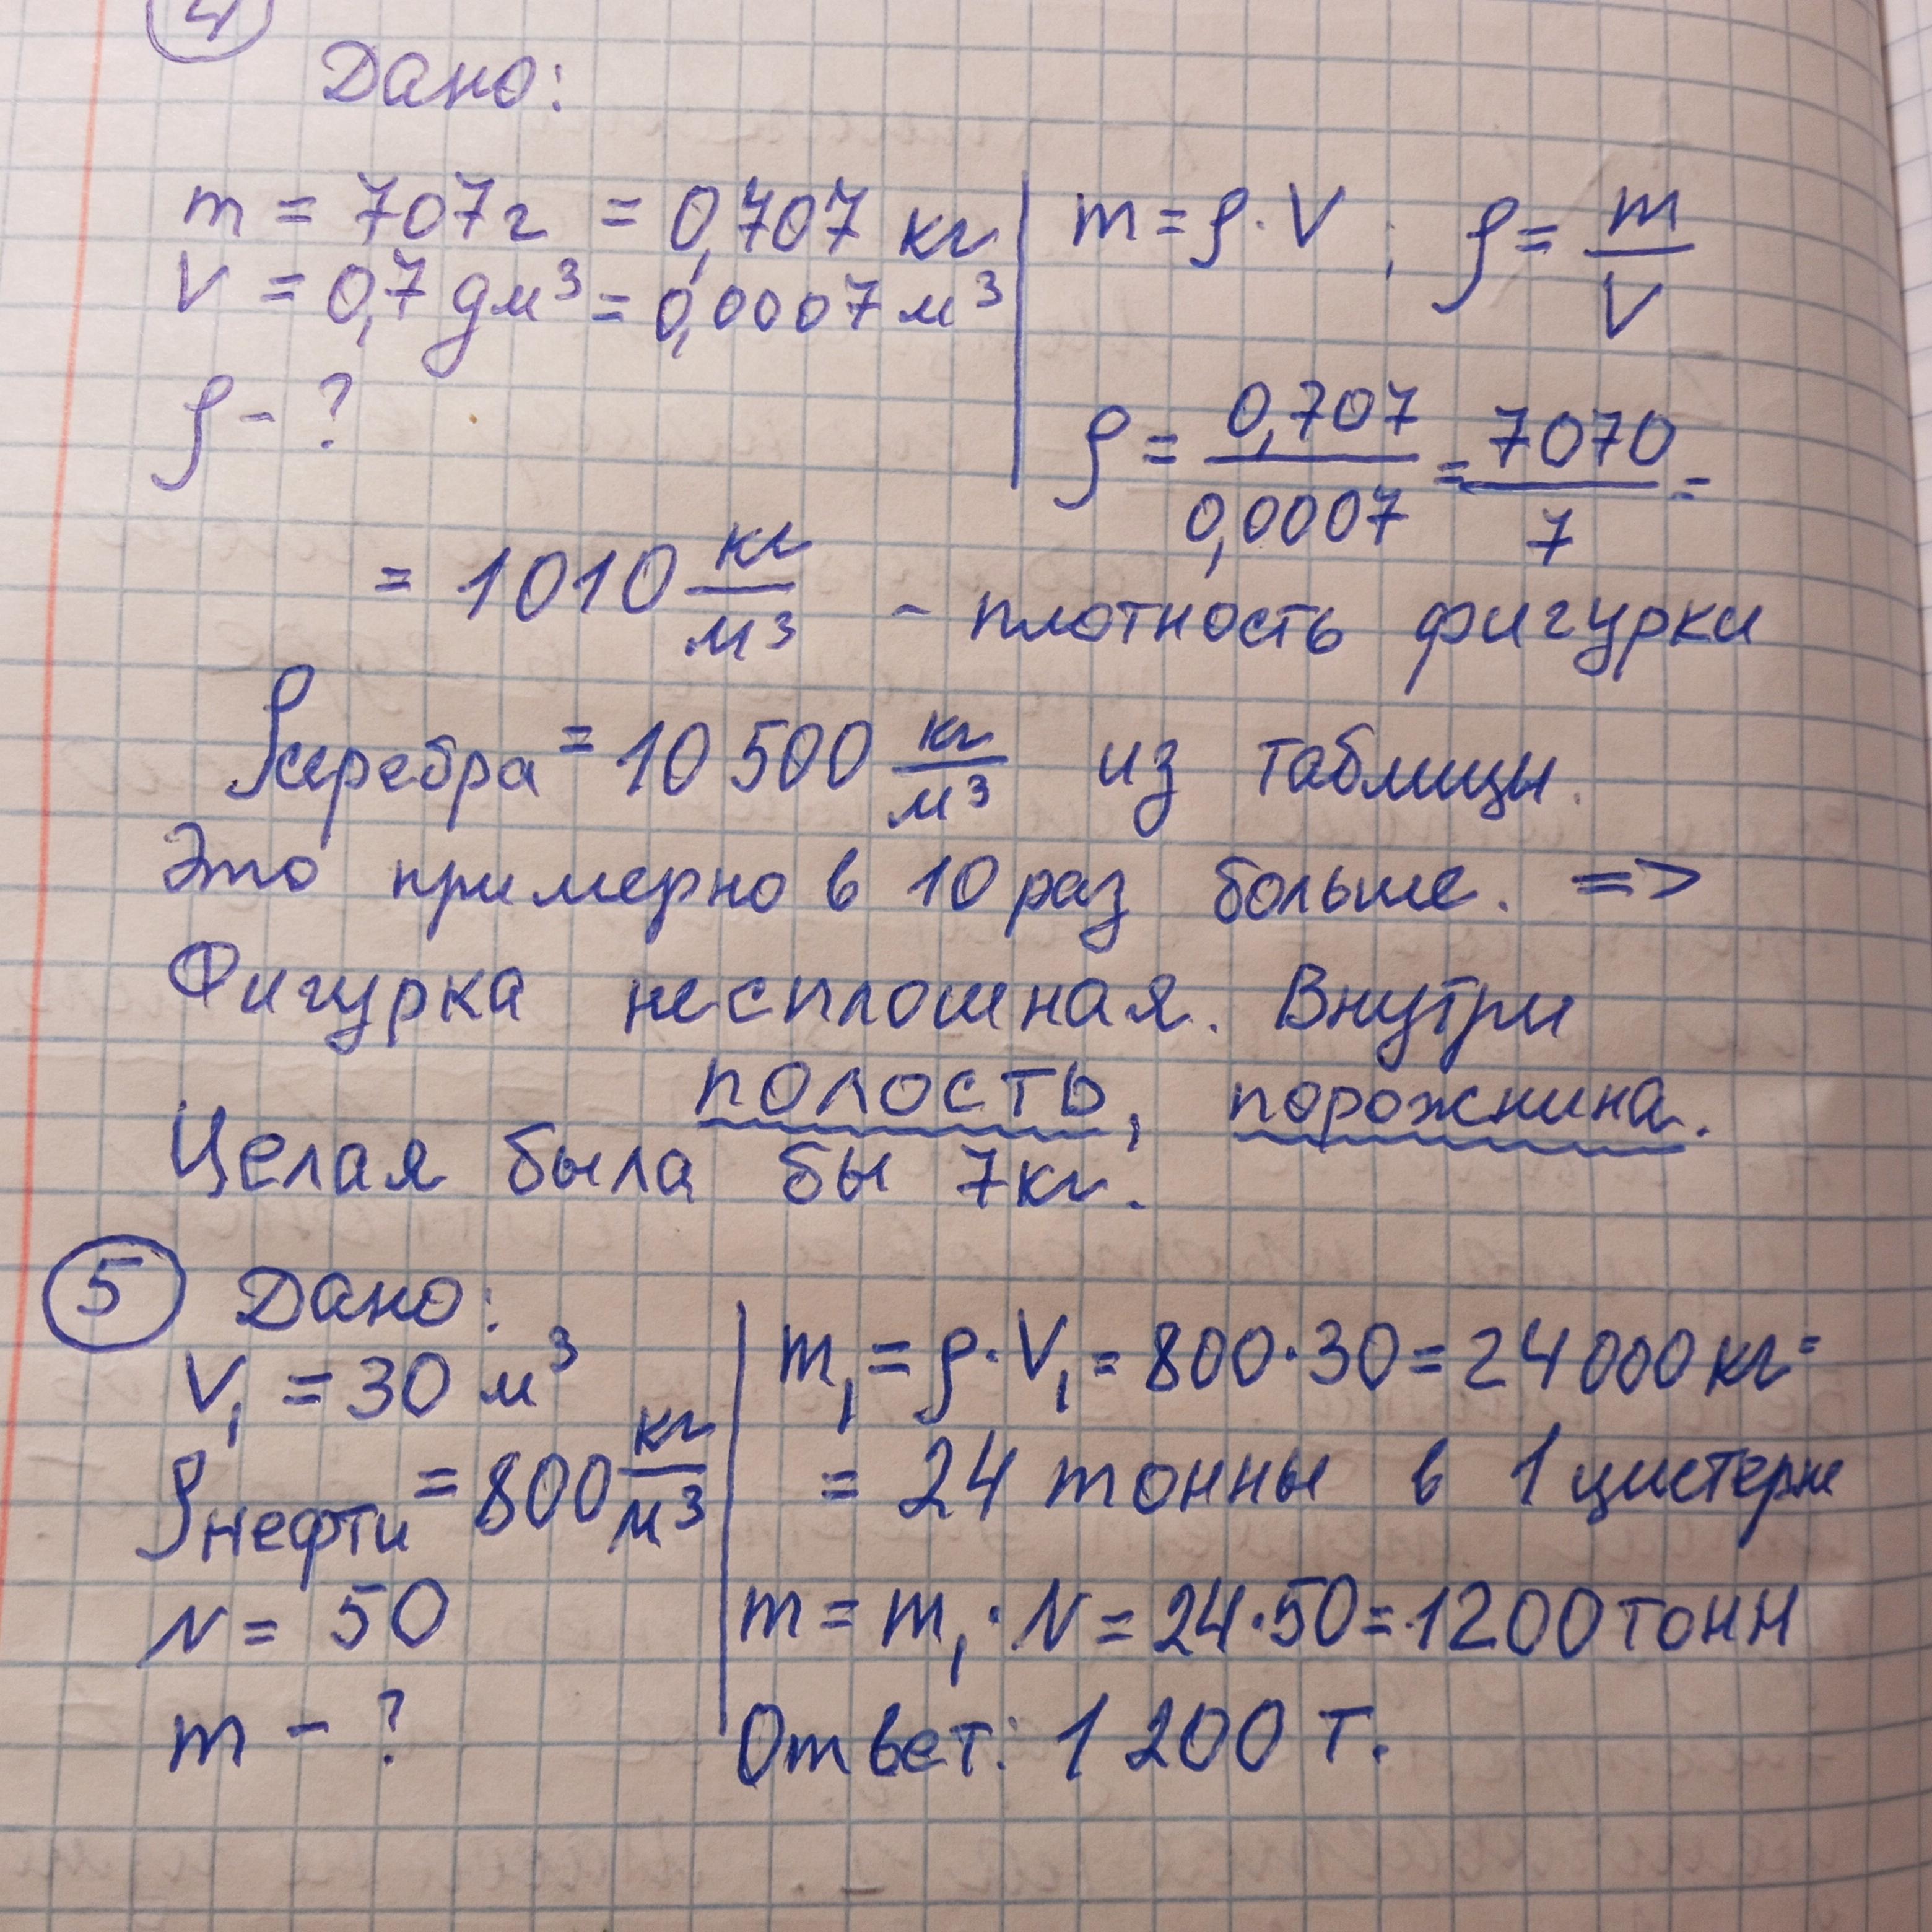 4
Дано:
m = 707г = 0,707 кг
V = 0,7 дм³ = 0,0007 м³
ρ - ?
m = ρ · V ; ρ = m/V
ρ = 0,707/0,0007 = 7070/7 =
= 1010 кг/м³ - плотность фигурки
ρ серебра = 10 500 кг/м³ из таблицы.
Это примерно в 10 раз больше. =>
Фигурка несплошная. Внутри
полость, порожнина.
Целая была бы 7кг.
5 Дано:
V₁ = 30 м³
ρ нефти = 800 кг/м³
N = 50
m - ?
m₁ = ρ · V₁ = 800 · 30 = 24 000 кг =
= 24 тонны в 1 цистерне
m = m₁ · N = 24 · 50 = 1200 тонн
Ответ: 1 200 т.